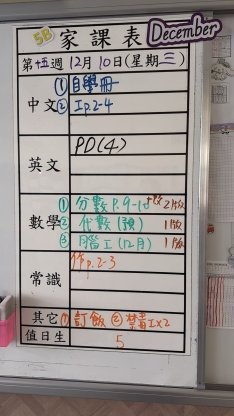 5B 家課表 December
第十五週 12月10日(星期三)
中文 ① 自學冊
② 工p.2-4
英文 PD(4)
數學 ① 分數 P.9-10 2版
② 代數 (預) 1版
③ 月腦工 (12月) 1版
常識 作p.2-3
其它 ① 訂飯 ② 禁書工x2
值日生 5